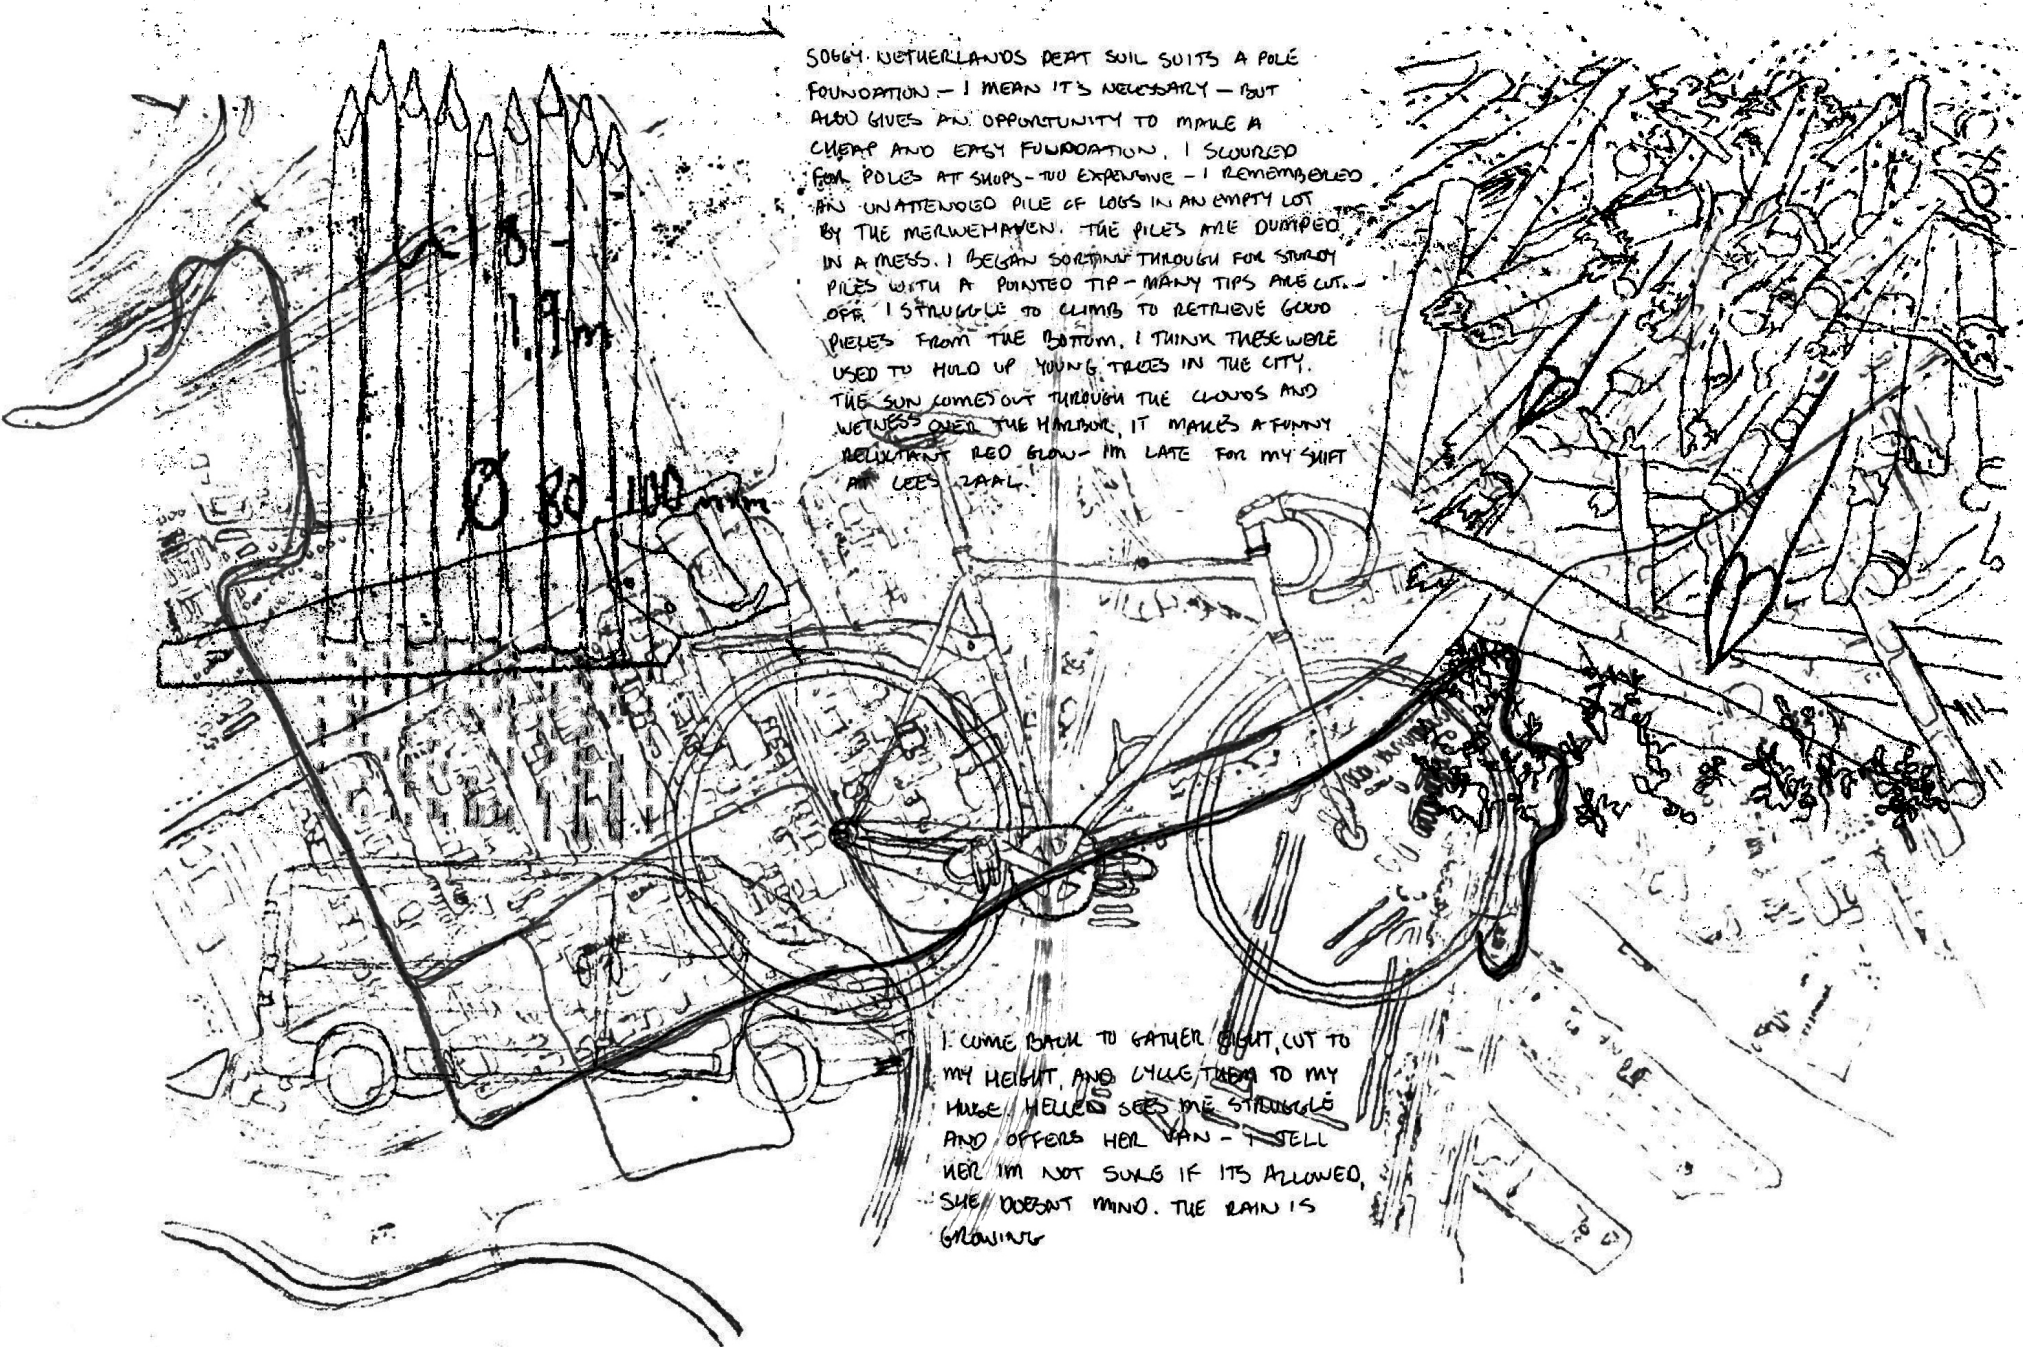 SOGGY NETHERLANDS PEAT SOIL SUITS A POLE
FOUNDATION – I MEAN IT'S NECESSARY – BUT
ALSO GIVES AN OPPORTUNITY TO MAKE A
CHEAP AND EASY FOUNDATION. I SCOURED
FOR POLES AT SHOPS – TOO EXPENSIVE – I REMEMBERED
AN UNATTENDED PILE OF LOGS IN AN EMPTY LOT
BY THE MERWEHAVEN. THE PILES ARE DUMPED
IN A MESS. I BEGAN SORTING THROUGH FOR STURDY
PILES WITH A POINTED TIP – MANY TIPS ARE CUT
OFF. I STRUGGLE TO CLIMB TO RETRIEVE GOOD
PIECES FROM THE BOTTOM. I THINK THESE WERE
USED TO HOLD UP YOUNG TREES IN THE CITY.
THE SUN COMES OUT THROUGH THE CLOUDS AND
WETNESS OVER THE HARBOR, IT MAKES A FUNNY
RELUCTANT RED GLOW – IM LATE FOR MY SHIFT
AT LEES ZAAL.
1.8 -
1.9 m
Ø 80 - 100 mm
I COME BACK TO GATHER EIGHT, CUT TO
MY HEIGHT, AND CYCLE THEM TO MY
HUSE. HELLEN SEES ME STRUGGLE
AND OFFERS HER VAN – I TELL
HER IM NOT SURE IF ITS ALLOWED,
SHE DOESNT MIND. THE RAIN IS
GROWING